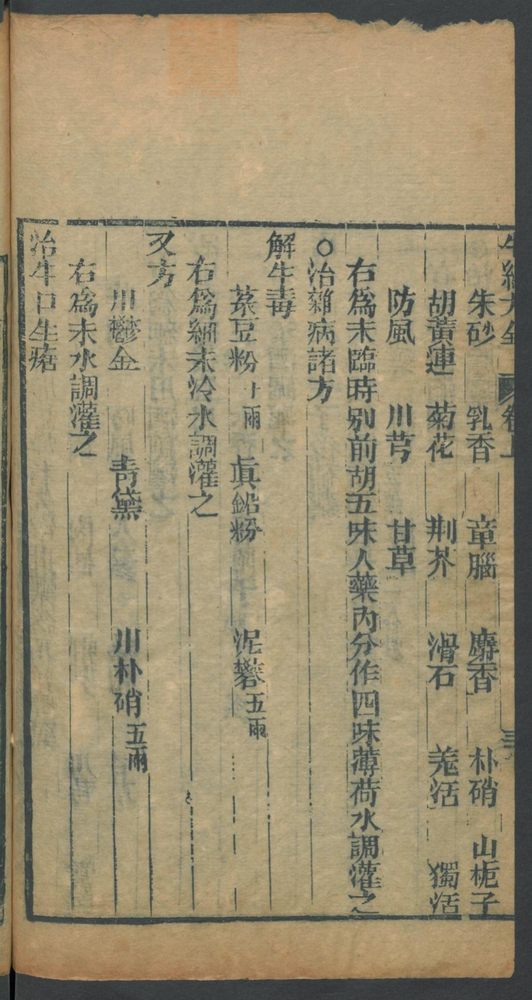 朱砂 乳香 童腦 麝香 朴硝 山梔子
胡黃連 菊花 荆芥 滑石 羗活 獨活
防風 川芎 甘草
右爲末臨時別前胡五味人藥內分作四味薄荷水調灌之
○治雜病諸方
解牛毒
菉豆粉十兩 眞鉛粉 泥礬五兩
右爲細末冷水調灌之
又方
川鬱金 靑黛 川朴硝五兩
右爲末水調灌之
治牛口生瘡